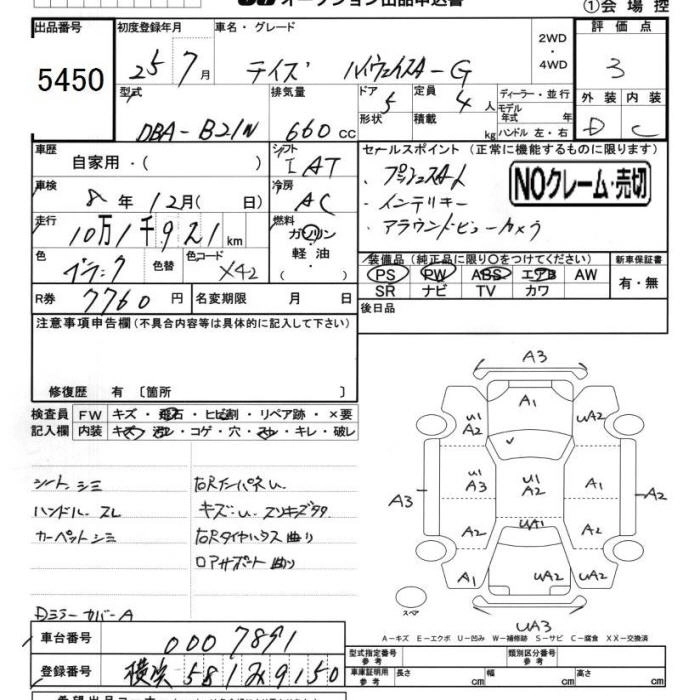 オークション出品申込書
①会場控
出品番号 初度登録年月 車名・グレード 2WD・4WD 評価点
5450 25 7月 デイズ ハイウェイスターG 3
型式 排気量 ドア 定員 ディーラー・並行 外装 内装
DBA-B21W 660cc 5 4人 モデル年式 年式 D C
形状 積載 kg ハンドル 左・右
車歴 シフト セールスポイント (正常に機能するものに限ります)
自家用・( ) IAT
・プッシュスタート
NOクレーム・売切
車検 冷房
8年12月( 日) AC
・インテリキー
走行 燃料
10万1千921km ガソリン・軽油・( )
・アラウンドビューカメラ
色 色替 色コード 装備品(純正品に限り○をつけてください) 新車保証書
X42 PS PW ABS エアB AW 有・無
SR ナビ TV カワ
R券 7760円 名変期限 月 日 後日品
注意事項申告欄(不具合内容等は具体的に記入して下さい)
修復歴 有〔箇所 〕
検査員 FW キズ・飛石・ヒビ割・リペア跡・×要
記入欄 内装 キズ・汚れ・コゲ・穴・スレ・キレ・破レ
シート シミ
ハンドル スレ
カーペットシミ
Dミラーカバー A
右Rインパネ U.
キズ:U. スリキズ
右Rタイヤハウス 曲り
ロアサポート曲り
A3
A1
U1 A2
UA2
U1 A3
U1 A2
A1
A3
A2
A2
UA1
A2
A1
UA2
UA2
UA3
スペア
A-キズ E-エクボ U-凹み W-補修跡 S-サビ C-腐食 XX-交換済
車台番号 0007891
型式指定番号 参考 類別区分番号 参考
登録番号 横浜 581 み 9150
車庫証明用 参考 長さ cm 幅 cm 高さ cm